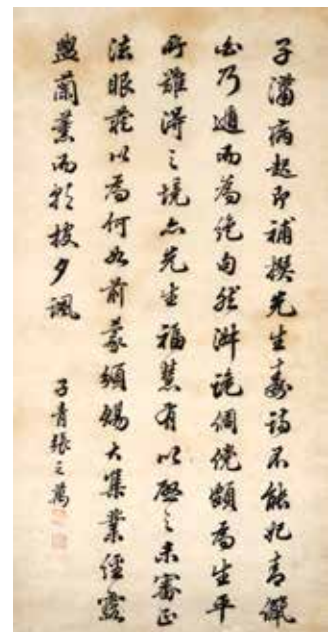 子潚病起即補撰先生壽詩不能妃青儷
白乃遁而為絕句然淋詭倜儻頗為生平
所難得之境亦先生福慧有以啟之未審正
法眼藏以為何如前蒙頒賜大集業經露
盥蘭薰而朝披夕諷
子青張之萬